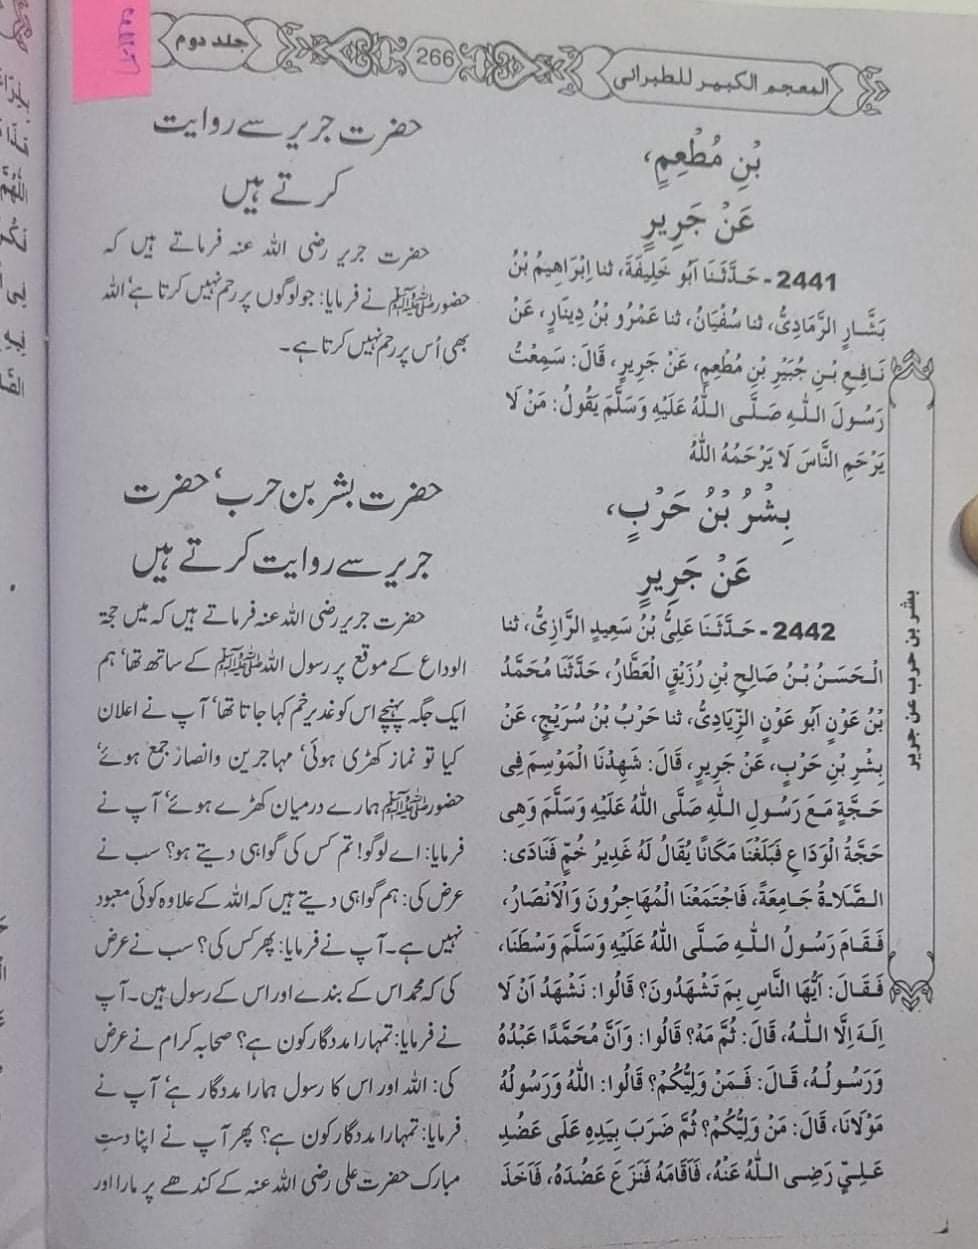 المعجم الكبير للطبرانی
266
جلد دوم
بْنِ مُطْعِمٍ،
عَنْ جَرِيرٍ
2441 - حَدَّثَنَا اَبُو خَلِيفَةَ، ثنا اِبْرَاهِيمُ بْنُ
بَشَّارٍ الرَّمَادِىُّ، ثنا سُفْيَانُ، ثنا عَمْرُو بْنُ دِينَارٍ، عَنْ
نَافِعِ بْنِ جُبَيْرِ بْنِ مُطْعِمٍ، عَنْ جَرِيرٍ، قَالَ: سَمِعْتُ
رَسُولَ اللّٰهِ صَلَّى اللّٰهُ عَلَيْهِ وَسَلَّمَ يَقُولُ: مَنْ لَا
يَرْحَمِ النَّاسَ لَا يَرْحَمُهُ اللّٰهُ
بِشْرُ بْنُ حَرْبٍ،
عَنْ جَرِيرٍ
2442 - حَدَّثَنَا عَلِىُّ بْنُ سَعِيدٍ الرَّازِىُّ، ثنا
الْحَسَنُ بْنُ صَالِحِ بْنِ رُزَيْقٍ الْعَطَّارُ، حَدَّثَنَا مُحَمَّدُ
بْنُ عَوْنٍ اَبُو عَوْنٍ الزِّيَادِىُّ، ثنا حَرْبُ بْنُ سُرَيْجٍ، عَنْ
بِشْرِ بْنِ حَرْبٍ، عَنْ جَرِيرٍ، قَالَ: شَهِدْنَا الْمَوْسِمَ فِى
حَجَّةٍ مَعَ رَسُولِ اللّٰهِ صَلَّى اللّٰهُ عَلَيْهِ وَسَلَّمَ وَهِىَ
حَجَّةُ الْوَدَاعِ فَبَلَغْنَا مَكَانًا يُقَالُ لَهُ غَدِيرُ خُمٍّ فَنَادَى:
الصَّلَاةُ جَامِعَةً، فَاجْتَمَعْنَا الْمُهَاجِرُونَ وَالْاَنْصَارُ،
فَقَامَ رَسُولُ اللّٰهِ صَلَّى اللّٰهُ عَلَيْهِ وَسَلَّمَ وَسْطَنَا،
فَقَالَ: اَيُّهَا النَّاسِ بِمَ تَشْهَدُونَ؟ قَالُوا: نَشْهَدُ اَنْ لَا
اِلَهَ اِلَّا اللّٰهُ، قَالَ: ثُمَّ مَهْ؟ قَالُوا: وَاَنَّ مُحَمَّدًا عَبْدُهُ
وَرَسُولُهُ، قَالَ: فَمَنْ وَلِيُّكُمْ؟ قَالُوا: اللّٰهُ وَرَسُولُهُ
مَوْلَانَا، قَالَ: مَنْ وَلِيُّكُمْ؟ ثُمَّ ضَرَبَ بِيَدِهِ عَلَى عَضُدِ
عَلِىٍّ رَضِىَ اللّٰهُ عَنْهُ، فَاَقَامَهُ فَنَزَعَ عَضُدَهُ، فَاَخَذَ
حضرت جریر سے روایت
کرتے ہیں
حضرت جریر رضی اللہ عنہ فرماتے ہیں کہ
حضور ﷺ نے فرمایا: جو لوگوں پر رحم نہیں کرتا ہے' اللہ
بھی اُس پر رحم نہیں کرتا ہے۔
حضرت بشر بن حرب' حضرت
جریر سے روایت کرتے ہیں
حضرت جریر رضی اللہ عنہ فرماتے ہیں کہ میں حجۃ
الوداع کے موقع پر رسول اللہ ﷺ کے ساتھ تھا' ہم
ایک جگہ پہنچے اس کو غدیر خم کہا جاتا تھا' آپ نے اعلان
کیا تو نماز کھڑی ہوئی' مہاجرین وانصار جمع ہوئے'
حضور ﷺ ہمارے درمیان کھڑے ہوئے' آپ نے
فرمایا: اے لوگو! تم کس کی گواہی دیتے ہو؟ سب نے
عرض کی: ہم گواہی دیتے ہیں کہ اللہ کے علاوہ کوئی معبود
نہیں ہے۔ آپ نے فرمایا: پھر کس کی؟ سب نے عرض
کی کہ محمد اس کے بندے اور اس کے رسول ہیں۔ آپ
نے فرمایا: تمہارا مددگار کون ہے؟ صحابہ کرام نے عرض
کی: اللہ اور اس کا رسول ہمارا مددگار ہے' آپ نے
فرمایا: تمہارا مددگار کون ہے؟ پھر آپ نے اپنا دستِ
مبارک حضرت علی رضی اللہ عنہ کے کندھے پر مارا اور
بشر بن حرب عن جریر